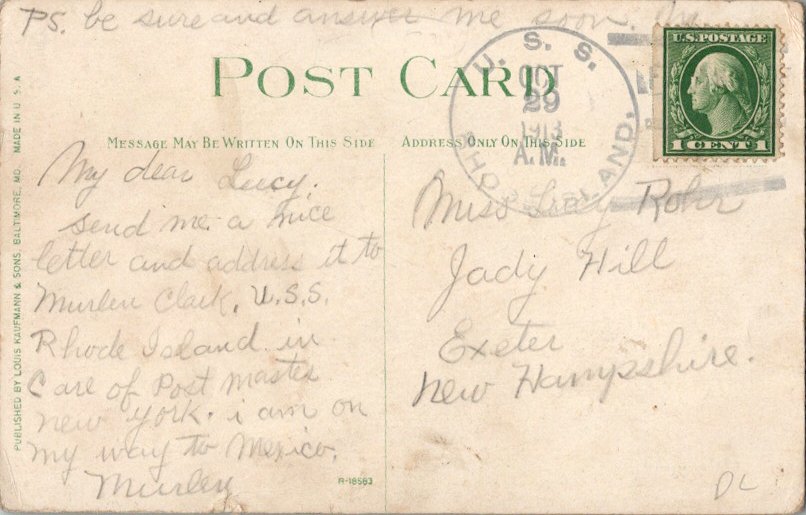 PS. be sure and answer me soon.
POST CARD
U. S. S.
OCT
29
1913
A.M.
RHODE ISLAND.
U.S. POSTAGE
1 CENT 1
MESSAGE MAY BE WRITTEN ON THIS SIDE
ADDRESS ONLY ON THIS SIDE
PUBLISHED BY LOUIS KAUFMANN & SONS, BALTIMORE, MD. MADE IN U. S. A
My dear Lucy,
send me a nice
letter and address it to
Murlen Clark, U.S.S.
Rhode Island in
Care of Post master
new york. i am on
my way to Mexico.
Murlen
Miss Lucy Rohr
Jady Hill
Exeter
New Hampshire.
R-18583
DL